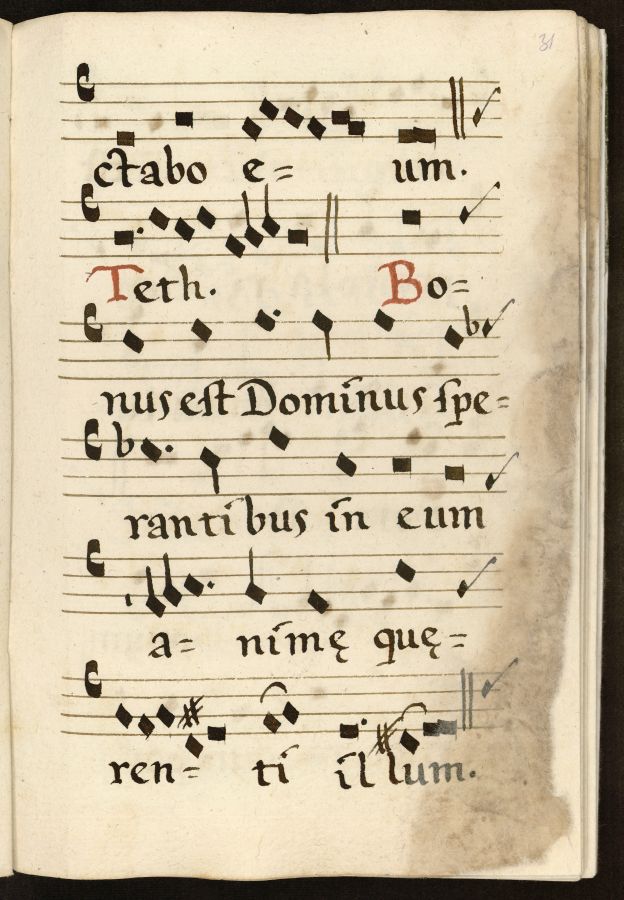 31
ctabo e= um.
Teth. Bo=
nus est Dominus spe=
rantibus in eum
a= nimę quę=
ren= ti illum.